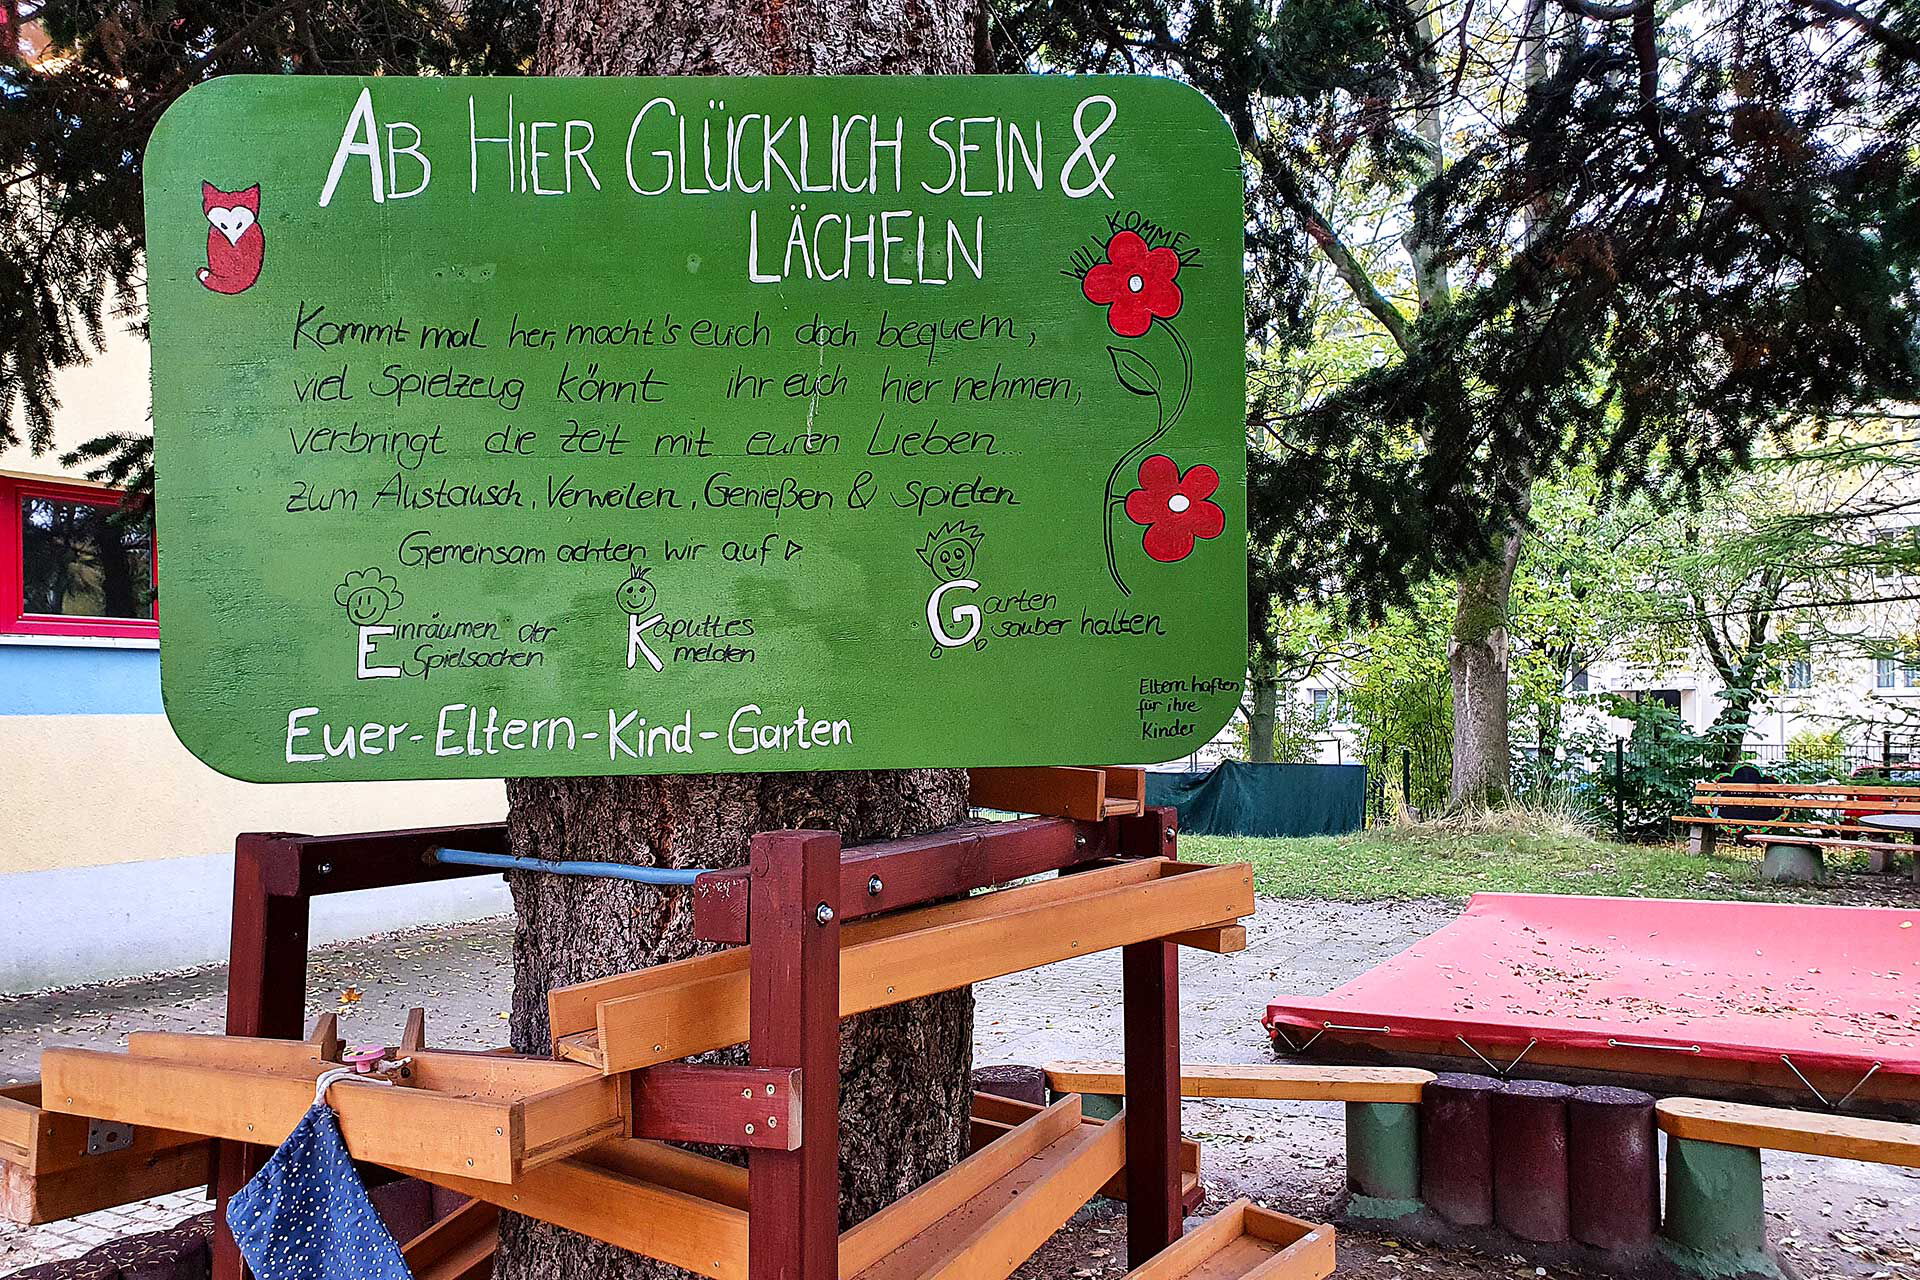 AB HIER GLÜCKLICH SEIN &
LÄCHELN
WILLKOMMEN
Kommt mal her, macht's euch doch bequem,
viel Spielzeug könnt ihr euch hier nehmen,
verbringt die Zeit mit euren Lieben...
zum Austausch, Verweilen, Genießen & Spielen
Gemeinsam achten wir auf ▷
Einräumen der
Spielsachen
Kaputtes
melden
Garten
sauber halten
Eltern haften
für ihre
Kinder
Euer-Eltern-Kind-Garten